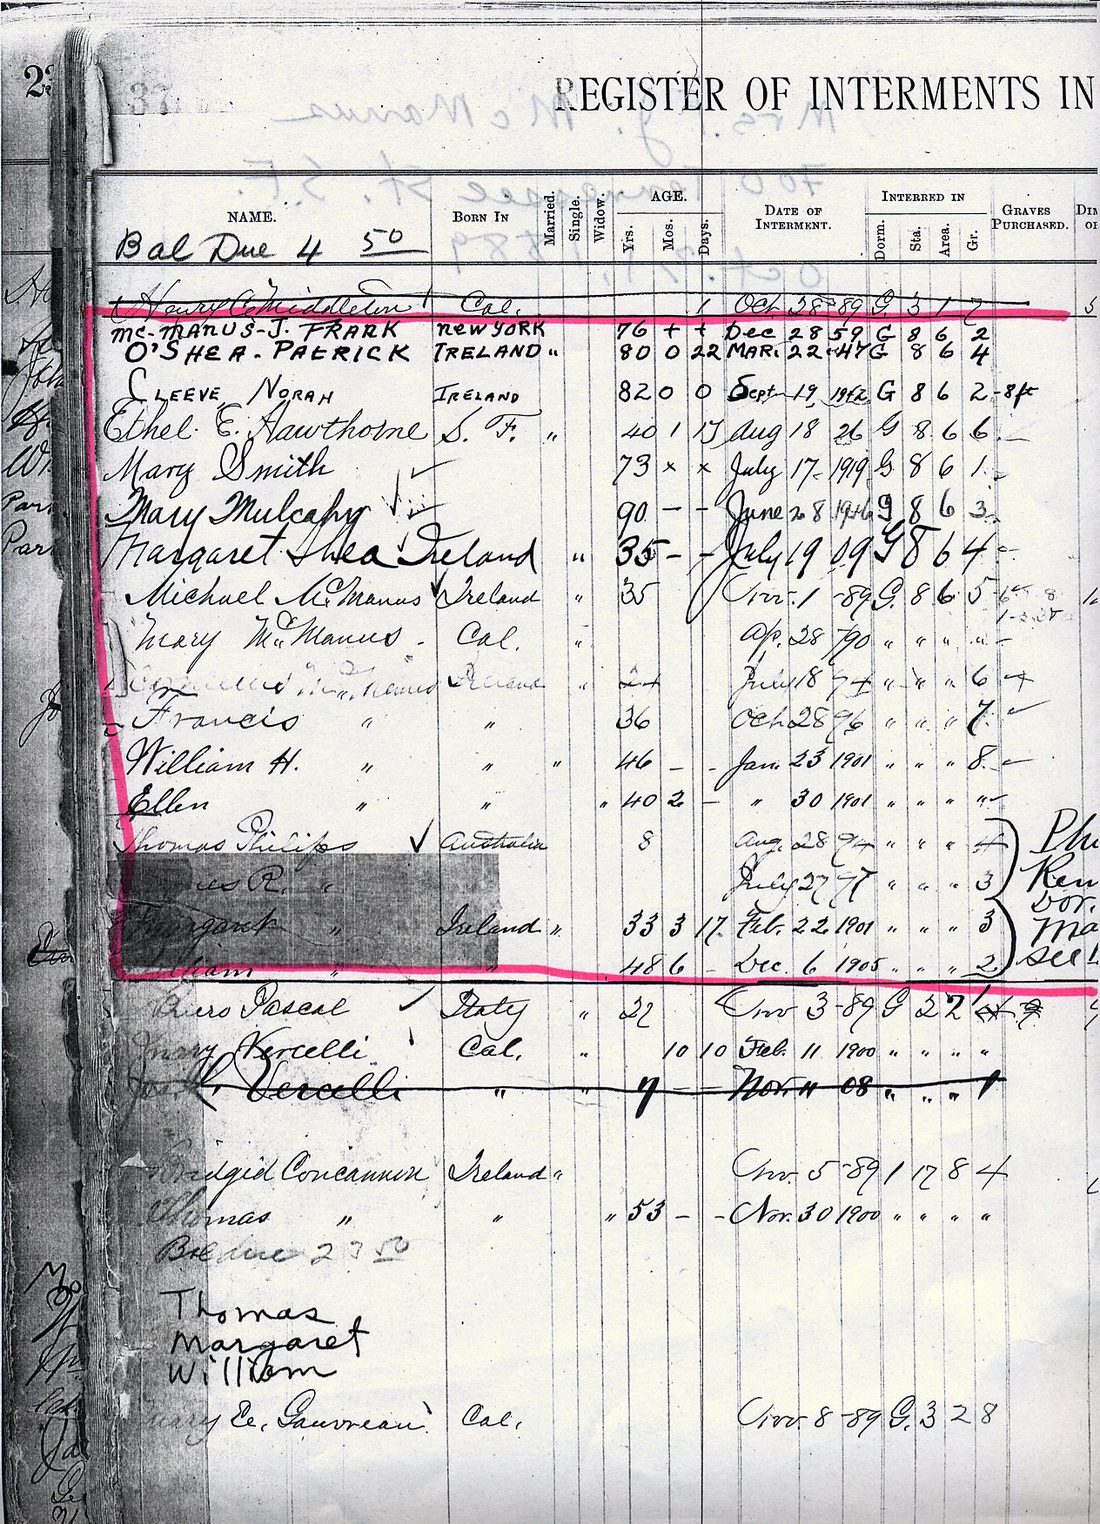 REGISTER OF INTERMENTS IN
NAME. BORN IN Married. Single. Widow. AGE. Yrs. Mos. Days. DATE OF INTERMENT. INTERRED IN Dorm. Sta. Area. Gr. GRAVES PURCHASED.
Bal Due 4 50
Henry C. Middleton Cal. 1 Oct 28 -89 G 3 1 7
MC-MANUS-J. FRANK NEW YORK 76 + + Dec 28 59 G 8 6 2
O'SHEA-PATRICK IRELAND " 80 0 22 MAR. 22-47 G 8 6 4
CLEEVE, NORAH IRELAND 82 0 0 Sept 19, 1962 G 8 6 2 -8ft
Ethel E. Hawthorne S. F. " 40 1 17 Aug 18 26 G 8 6 6
Mary Smith 73 x x July 17- 1919 G 8 6 1
Mary Mulcahy 90 - - June 28 1946 G 8 6 3
Margaret Shea Ireland " 35 - - July 19 09 G 8 6 4
Michael McManus Ireland " 35 Nov. 1 -89 G. 8 6 5
Mary McManus. Cal. " Ap. 28 -90 " " " "
McManus Ireland " 24 July 18 94 " " " 6
Francis " " 36 Oct. 28 96 " " " 7
William H. " " " 46 - - Jan. 23 1901 " " " 8
Ellen " " " 40 2 - " 30 1901 " " " "
Thomas Philips Australia 8 Aug. 28 94 " " " 4
R. " July 27 97 " " " 3
Margaret " Ireland " 33 3 17 Feb. 22 1901 " " " 3
William " " 48 6 - Dec. 6 1905 " " " 2
Pascal Italy " 27 Nov 3 -89 G 2 2
Mary Vercelli Cal. " 10 10 Feb. 11 1900 " " " "
Vercelli " " 7 - - Nov. 11 08 " " " 1
Bridgid Concannon Ireland " Nov. 5 -89 1 17 8 4
Thomas " " " 53 - - Nov. 30 1900 " " " "
Bal due 2 50
Thomas
Margaret
William
Gauvreau Cal. Nov. 8 -89 G. 3 2 8